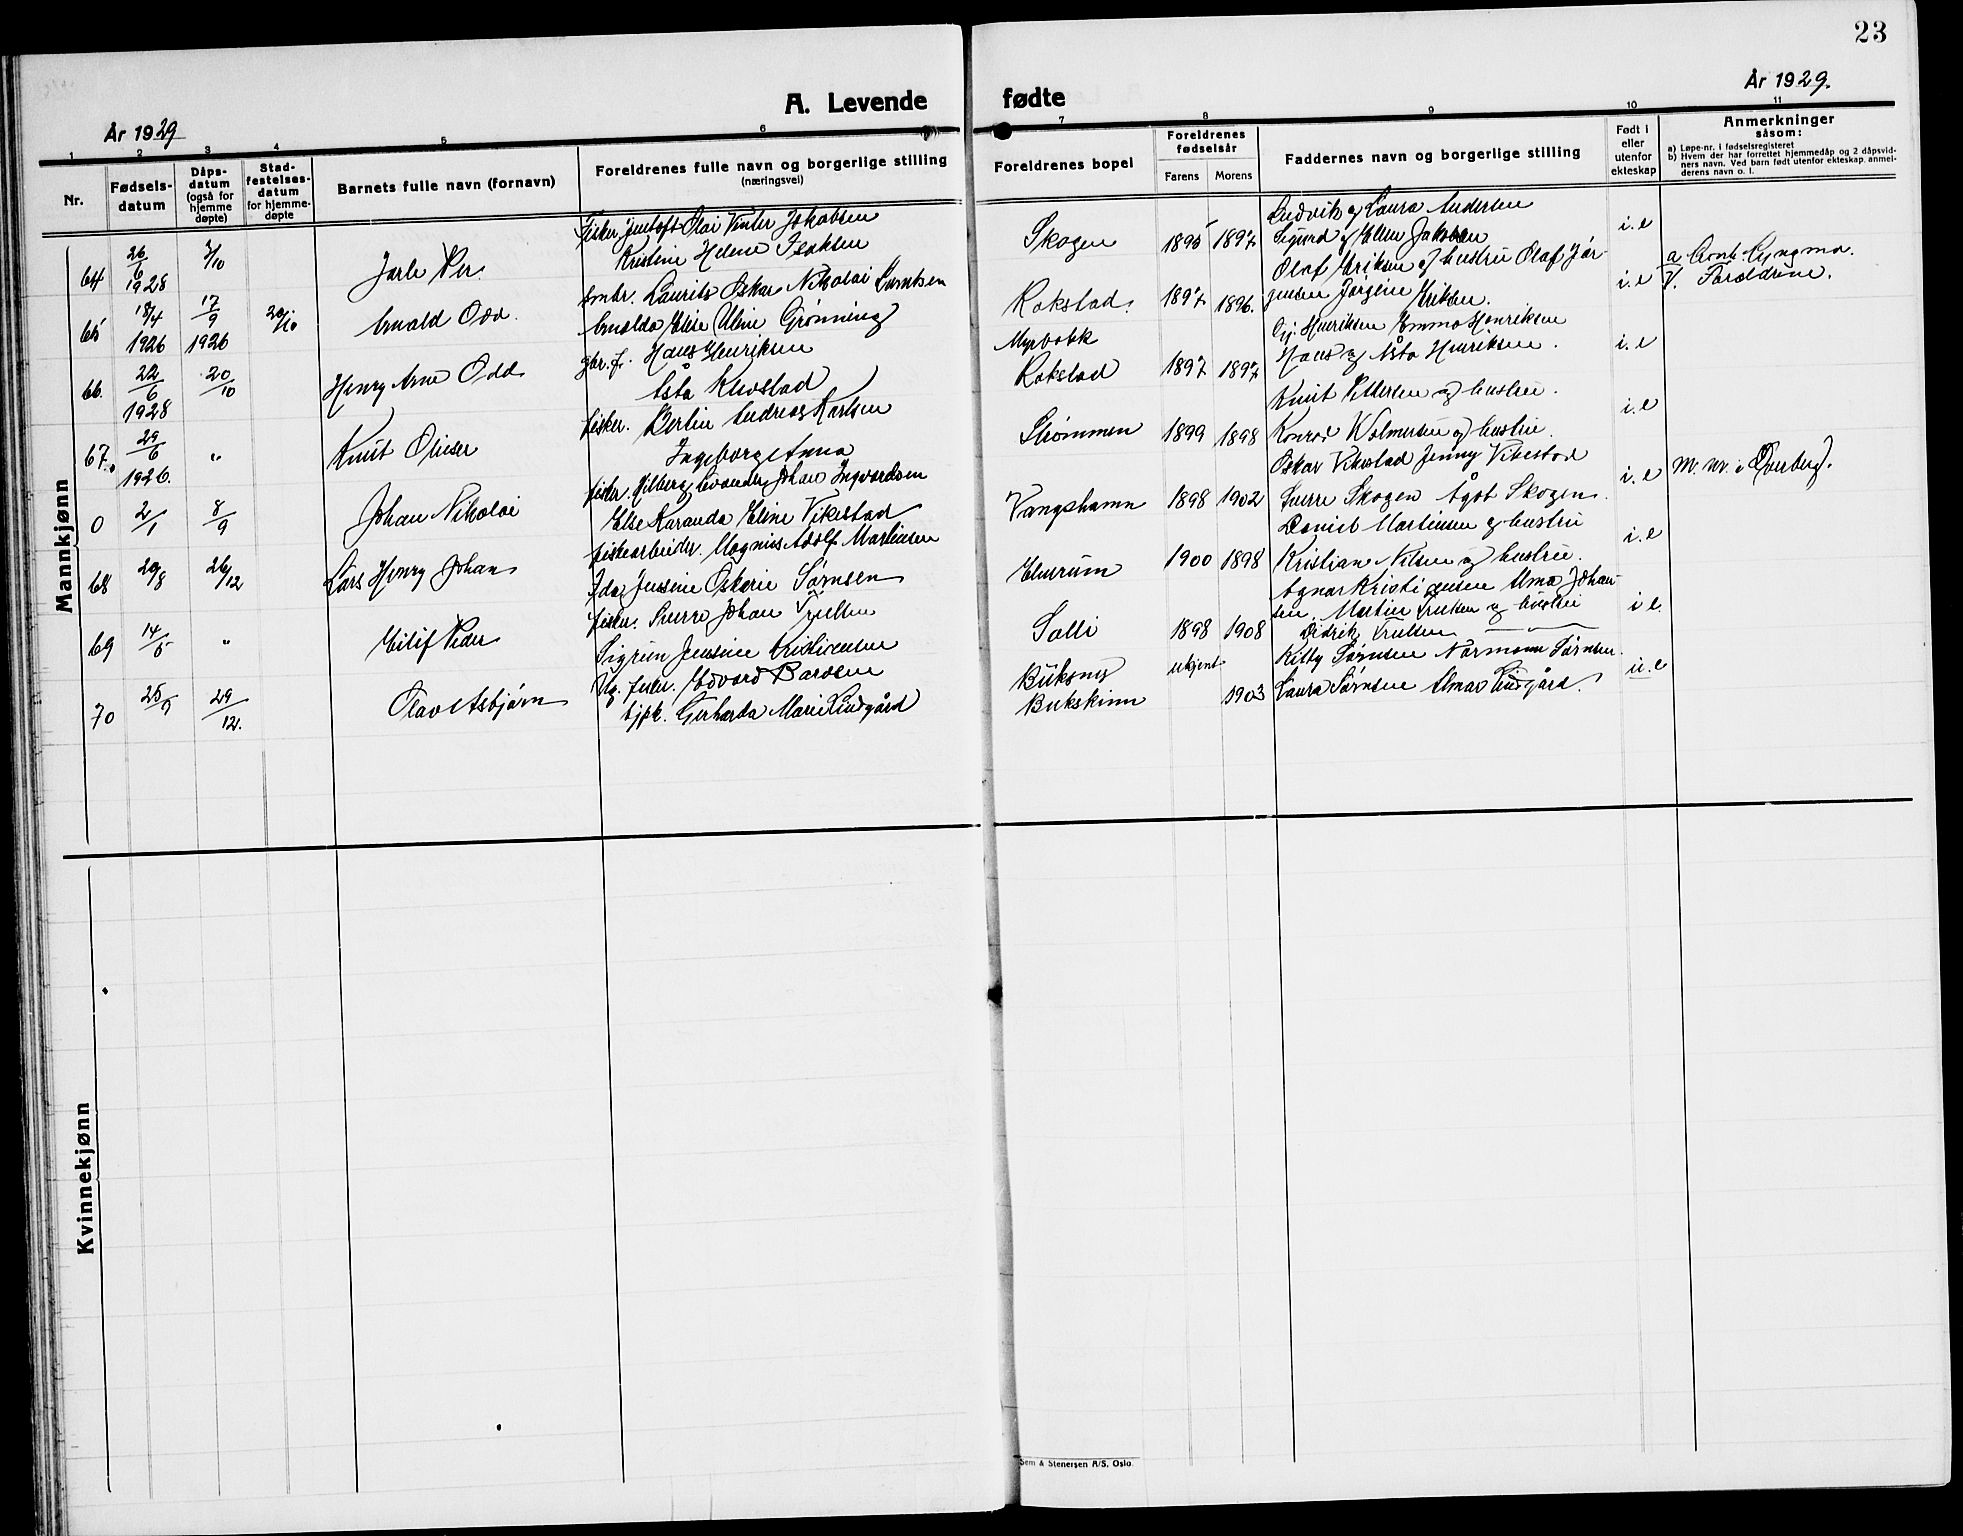 23
År 1929
A. Levende
fødte
År 1929.
1 2 3 4 5 6 7 8 9 10 11
Nr.
Fødsels-
datum
Dåps-
datum
(også for
hjemme
døpte)
Stad-
festelses-
datum
for hjemme-
døpte
Barnets fulle navn (fornavn)
Foreldrenes fulle navn og borgerlige stilling
(næringsvei)
Foreldrenes bopel
Foreldrenes
fødselsår
Farens Morens
Faddernes navn og borgerlige stilling
Født i
eller
utenfor
ekteskap
Anmerkninger
såsom:
a) Løpe-nr. i fødselsregisteret
b) Hvem der har forrettet hjemmedåp og 2 dåpsvid-
ners navn. Ved barn født utenfor ekteskap, anmel-
derens navn o. l.
Mannkjønn
64 26/6 1928 /10 Jarle Per.
Fisker Jentoft Olai Vinter Jakobsen
Kristine Helene Isaksen
Skogen 1895 1897
Ludvik og Laura Andersen
Sigurd og Ellen Jakobsen
i. e
65 18/4 1926 17/9 1926 20/10 Arnald Odd.
smbr. Laurits Oskar Nikolai Larntsen
Arnalda Elise Aline Grønning
Rokstad. 1897 1896.
Olaf Eriksen og hustru Olaf Jør-
gensen Jørgine Eriksen.
i. e
Foreldrene.
66. 22/6 1928 20/10 Henry Arne Odd
gbr. f. Hans Henriksen
Åsta Kivstad
Myrbakk
Rokstad 1897 1897
Henriksen Emma Henriksen
Hans og Åsta Henriksen.
i. e
67. 29/6 1926. " Knut Olieser
fisker. Bertin Andreas Karlsen
Ingeborg Anna
Strømmen 1899 1898
Knut Pettersen og hustru.
Konrad Wolmersen og hustru.
i. e
0 2/1 8/9 Johan Nikolai
fisker. Hilberg Evander Johan Ingvardsen
Else Karanda Eline Vikestad
Vangshamn 1898 1902
Oskar Vikestad Jenny Vikestad
Sverre Skogen Ågot Skogen.
i. e
M. nr. i Øverberg.
68 29/8 26/12 Lars Henry Johan
fiskearbeider. Magnus Adolf Martinsen
Ida Jensine Oskarie Sørnsen
Elverum 1900 1898
Daniel Martinsen og hustru
Kristian Nilsen og hustru.
i. e
69 14/5 " Eilif Peder
fisker. Sverre Johan Trulsen
Sigrun Jensine Kristiansen
Salli 1898 1908
Agnar Kristiansen Alma Johan-
sen, Martin Trulsen og hustru
Didrik Trulsen
i e.
70 25/9 29/12. Olav Asbjørn
Ug. fisker. Edvard Bardsen
tjpk. Gerharda Marie Lindgård
Buksnes
Bukskinn ukjent 1903
Kitty Sørnsen Normann Sørnsen.
Laura Sørnsen Alma Lindgård.
u. e
Kvinnekjønn
Sem & Stenersen A/S, Oslo.